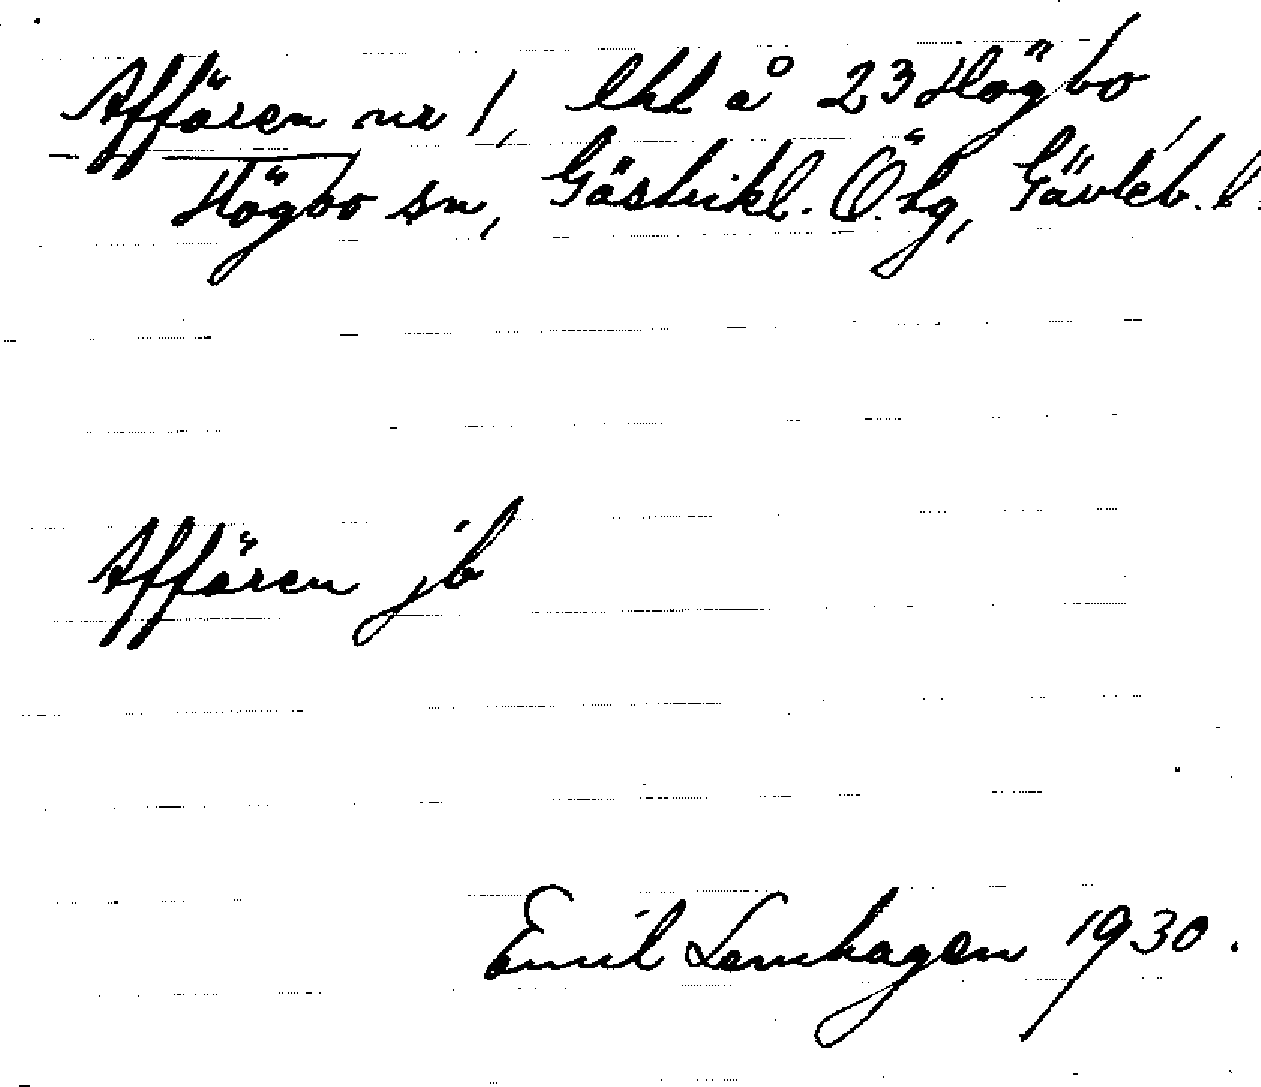 Affären nr 1, lht å 23 Högbo
Högbo sn, Gästrikl. Ö. hg, Gävleb. l.
Affären jb
Emil Lennhagen 1930.